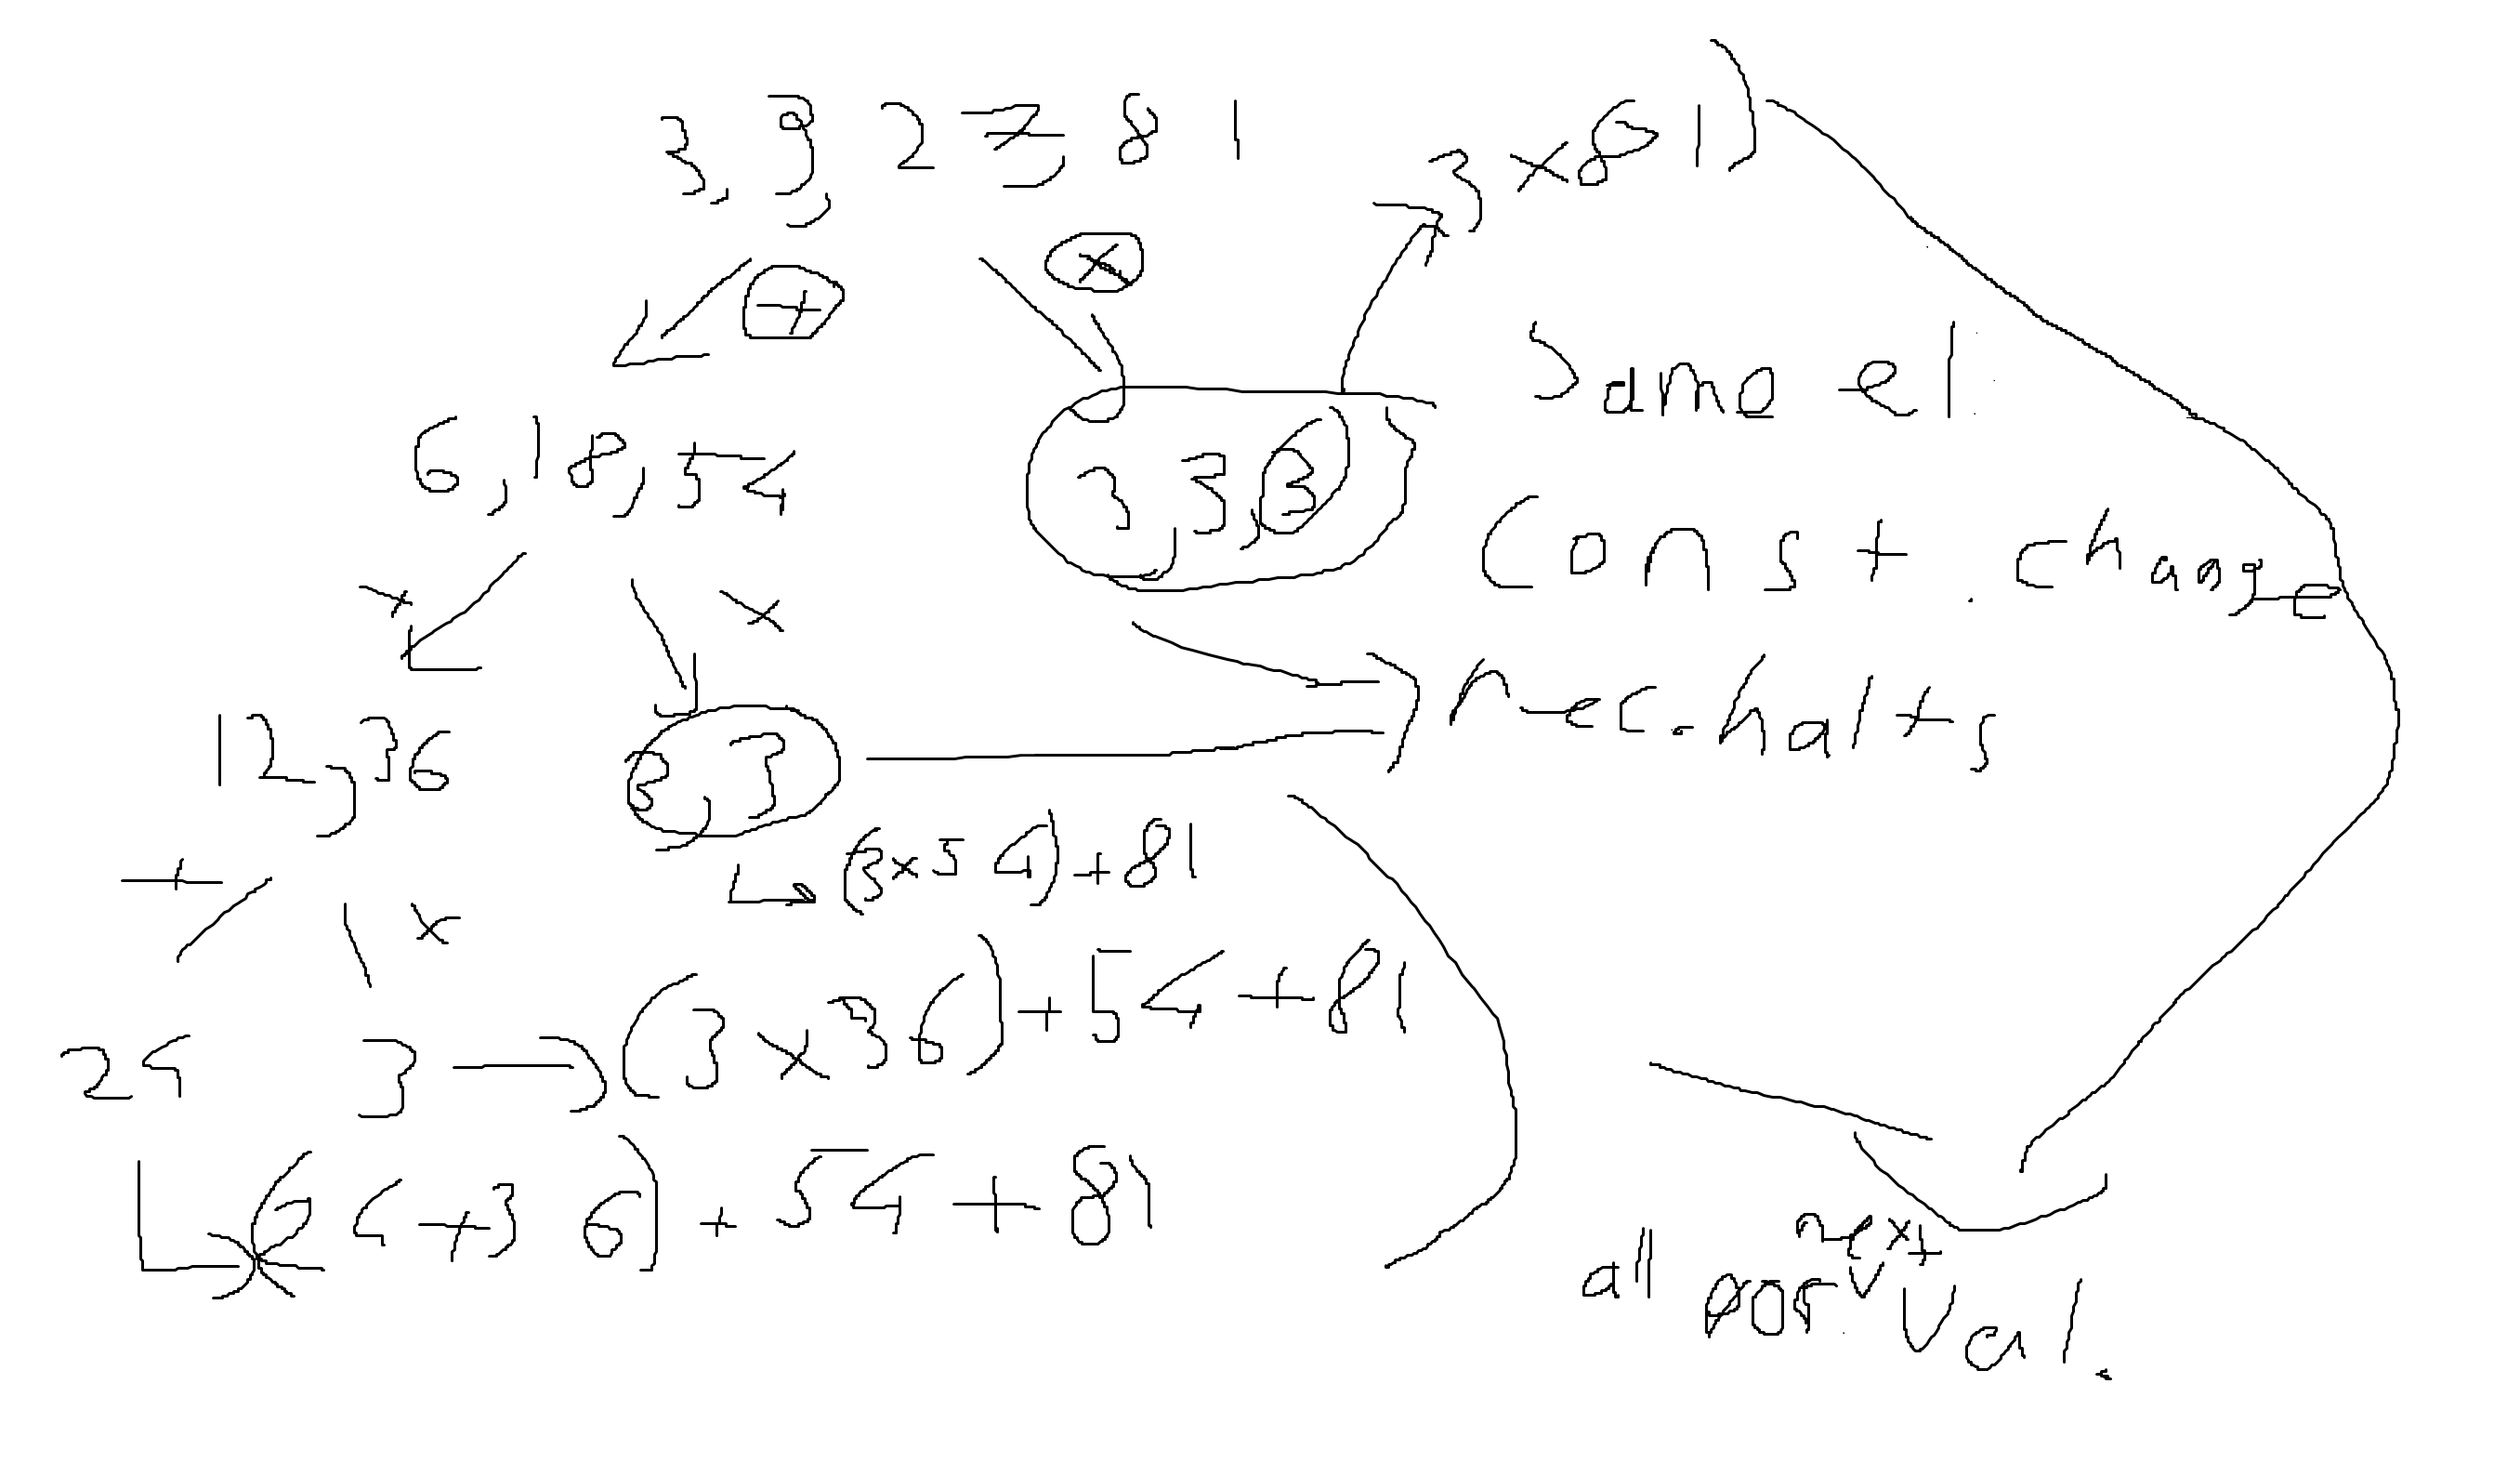 3, 9, 27, 81
3 x 81)
+
x
6, 18, 54
3, 3, 3
const. change
+
x
rec. halts
12, 36
3, 3
(3x54)+81
+
x
24 3 → (3x36)+54+81
(24+36)+54+81
all por next val.